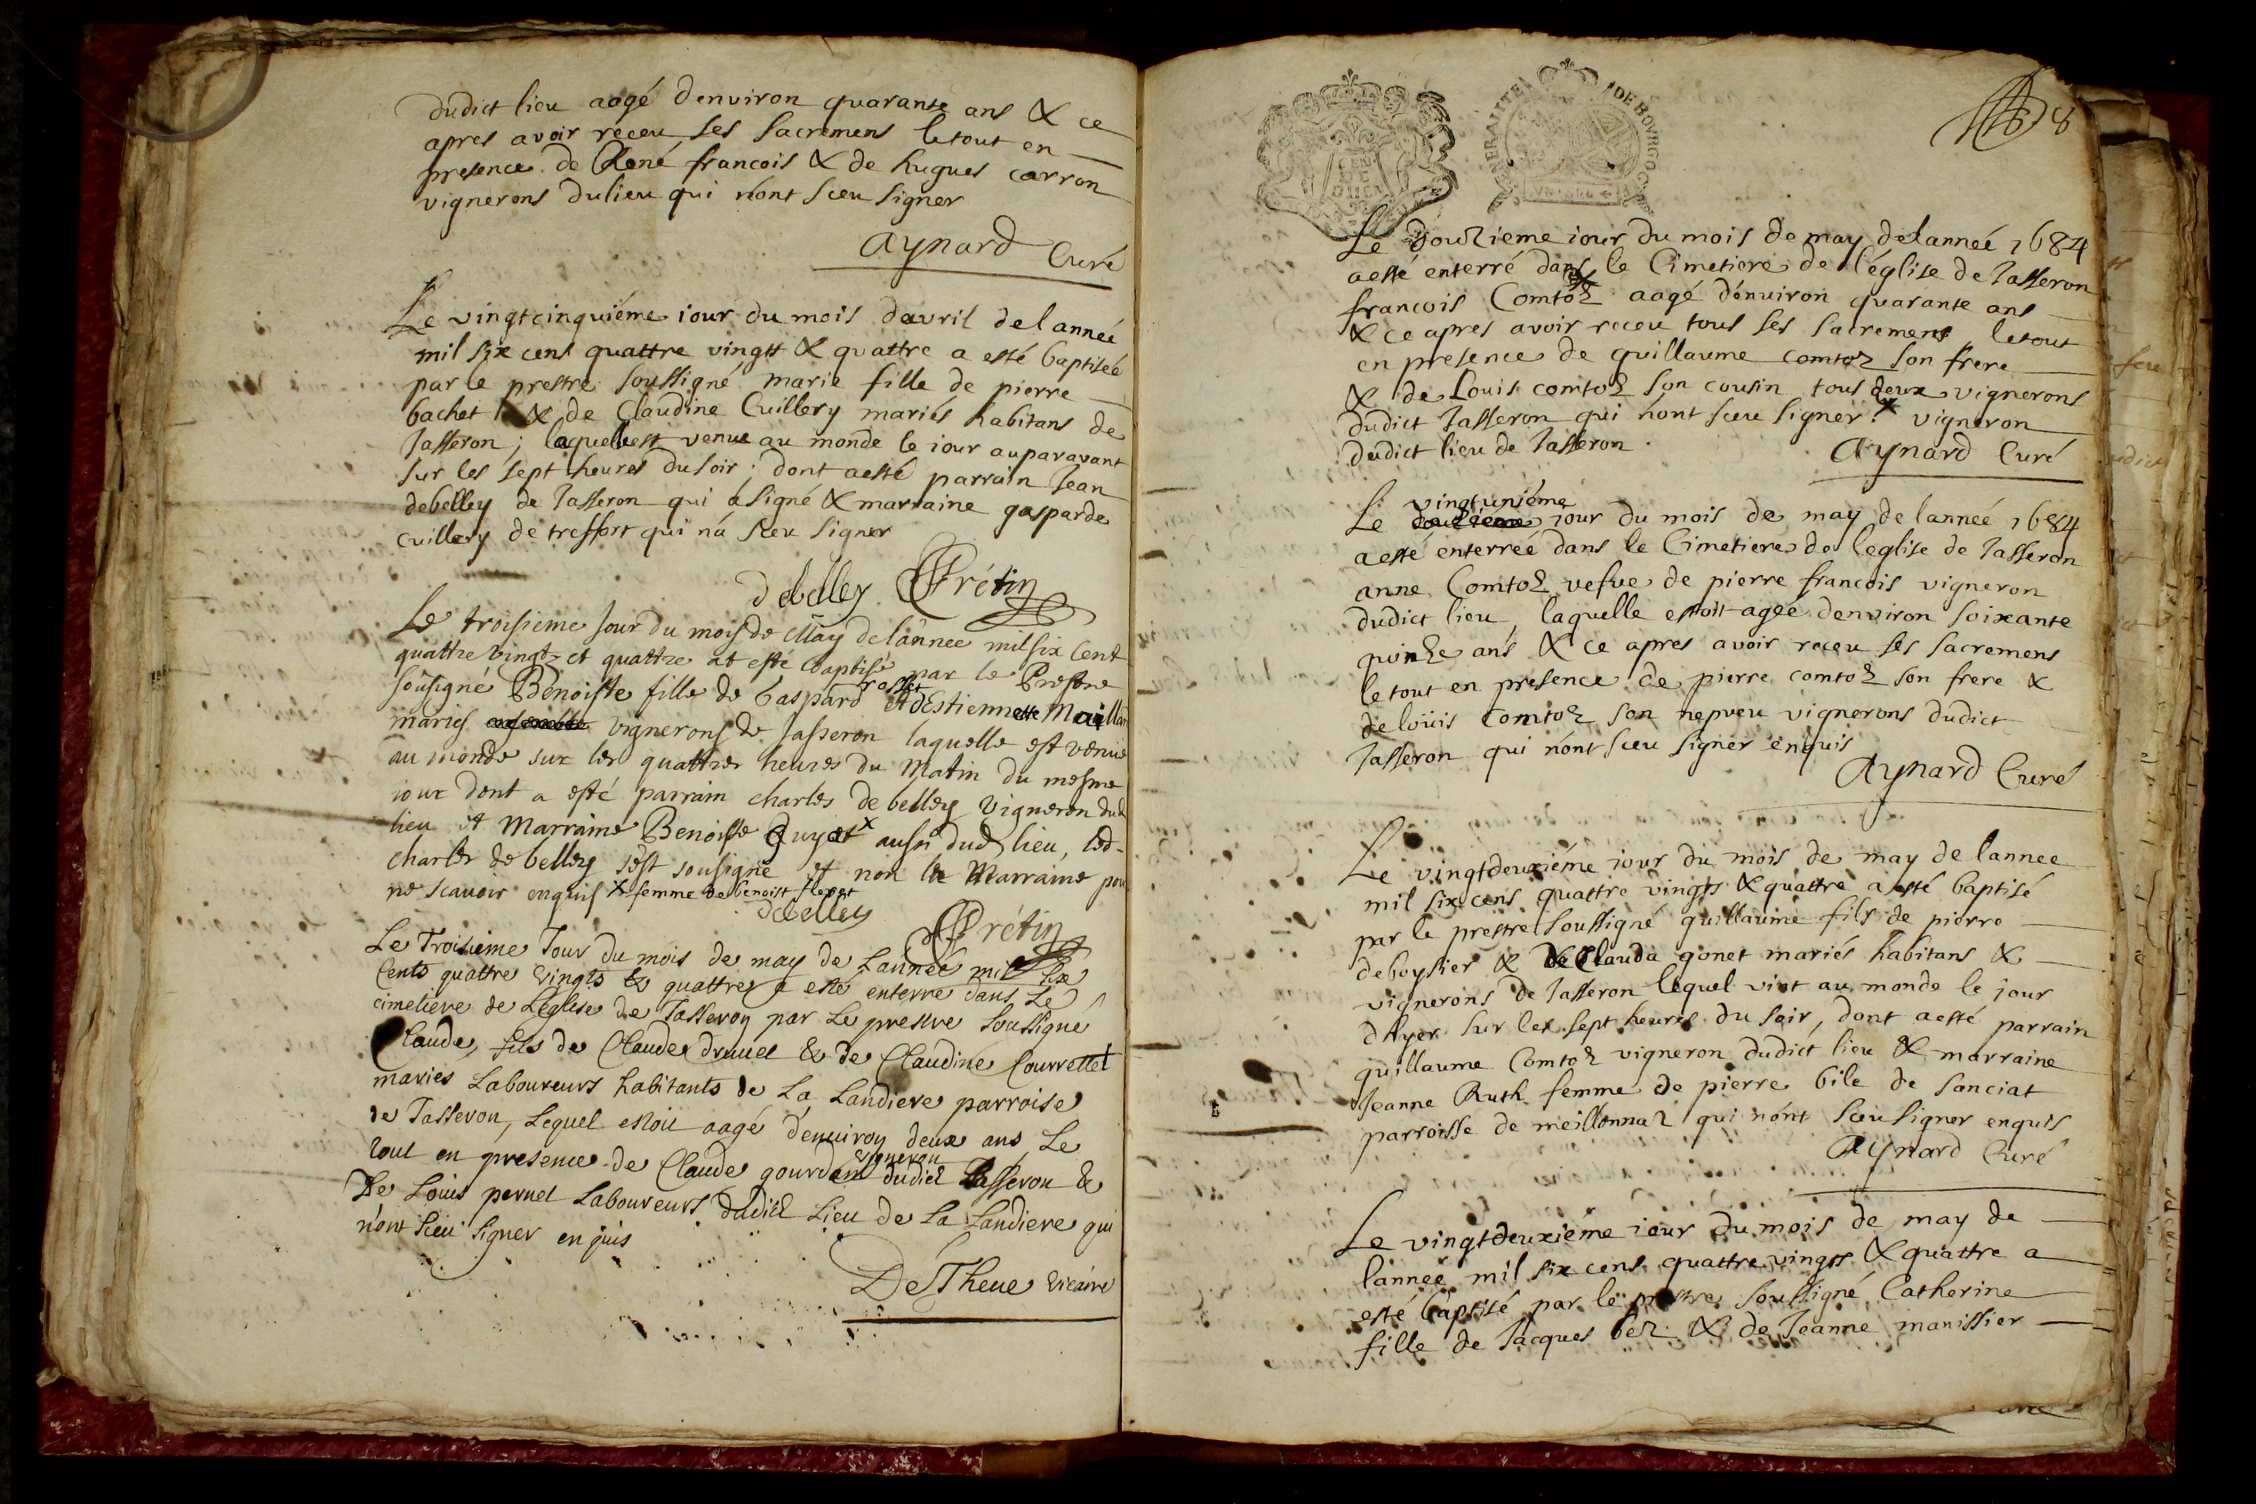 dudict lieu aagé denviron quarante ans & ce
apres avoir receu ses sacremens le tout en
presence de René francois & de hugues carron
vignerons du lieu qui nont sceu signer
Aynard Curé
Le vingtcinquiéme iour du mois davril de lannée
mil six cens quattre vingts & quattre a esté baptisée
par le prestre soussigné marie fille de pierre
bachet & de Claudine Cuillery mariés habitans de
Jasseron ; laquelle est venue au monde le iour auparavant
sur les sept heures du soir ; dont a esté parrain Jean
debelley de Jasseron qui a signé & marraine gasparde
cuillery de treffort qui na sceu signer
debelley Prétin
Le troisieme Jour du mois de May de lannee mil six Cent
quattre vingtz et quattre at esté baptisé par le Prestre
sousigné Benoiste fille de Gaspard rosset et dEstiennette Maillar
mariés ensemble vignerons de Jasseron laquelle est venue
au monde sur les quattres heures du Matin du mesme
iour dont a esté parrain charles de belley Vigneron dud
lieu et Marraine Benoiste Guyot x aussi dud lieu, led-
charles de belley sest sousigné et non la Marraine pou
ne scavoir enquis x femme de benoist floret
debelley Prétin
Le Troisieme Jour du mois de may de Lannee mil six
Cents quattre vingts & quattre a esté enterre dans Le
cimetiere de Leglise de Jasseron par Le prestre soussigné
Claude, fils de Claude druuet & de Claudine Courrettet
maries Laboureurs habitants de La Landiere parroise
de Jasseron, Lequel estoit aagé denuiron deux ans, Le
tout en presence de Claude gourdan vigneron dudict Jasseron &
De Louis peruet Laboureurs dudict Lieu de La Landiere qui
n'ont sceu signer enquis
DesTheue vicaire
8
GENERALITE DE BOURGO
Le douzieme iour du mois de may de lannee 1684
a esté enterré dans le Cimetiere de l'église de Jasseron
francois Comtoz x aagé d'enuiron quarante ans
& ce apres avoir receu tous ses sacremens le tout
en presence de guillaume comtoz son frere
& de Louis comtoz son cousin tous deux vignerons
dudict Jasseron qui nont sceu signer x vigneron
dudict lieu de Jasseron.
Aynard Curé
Le douzieme vingtuniéme iour du mois de may de lannée 1684
a esté enterrée dans le Cimetiere de leglise de Jasseron
anne Comtoz vefve de pierre francois vigneron
dudict lieu, laquelle estoit agée denviron soixante
quinze ans & ce apres avoir receu ses sacremens
le tout en presence de pierre comtoz son frere &
de loüis Comtoz son nepveu vignerons dudict
Jasseron qui n'ont sceu signer enquis
Aynard Curé
Le vingtdeuxiéme iour du mois de may de lannee
mil six cens quattre vingts & quattre a esté baptisé
par le prestre soussigné guillaume fils de pierre
deboyssier & de Clauda gonet mariés habitans &
vignerons de Jasseron lequel vint au monde le jour
d'hyer sur les sept heures du soir, dont a esté parrain
guillaume Comtoz vigneron dudict lieu & marraine
Jeanne Ruth femme de pierre bile de Sanciat
parroisse de meillonnaz qui n'ont sceu signer enquis
Aynard Curé
Le vingtdeuxiéme iour du mois de may de
lannée mil six cens quattre vingts & quattre a
esté baptisé par le prestre soussigné Catherine
fille de Jacques bez & de Jeanne manissier